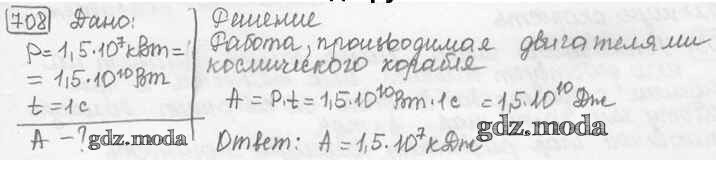 708 Дано:
P=1,5·10⁷кВт=
=1,5·10¹⁰Вт
t=1c
A-?
gdz.moda
Решение
Работа, производимая двигателями
космического корабля
A=P·t=1,5·10¹⁰Вт·1c =1,5·10¹⁰Дж
gdz.moda
Ответ: A=1,5·10⁷кДж